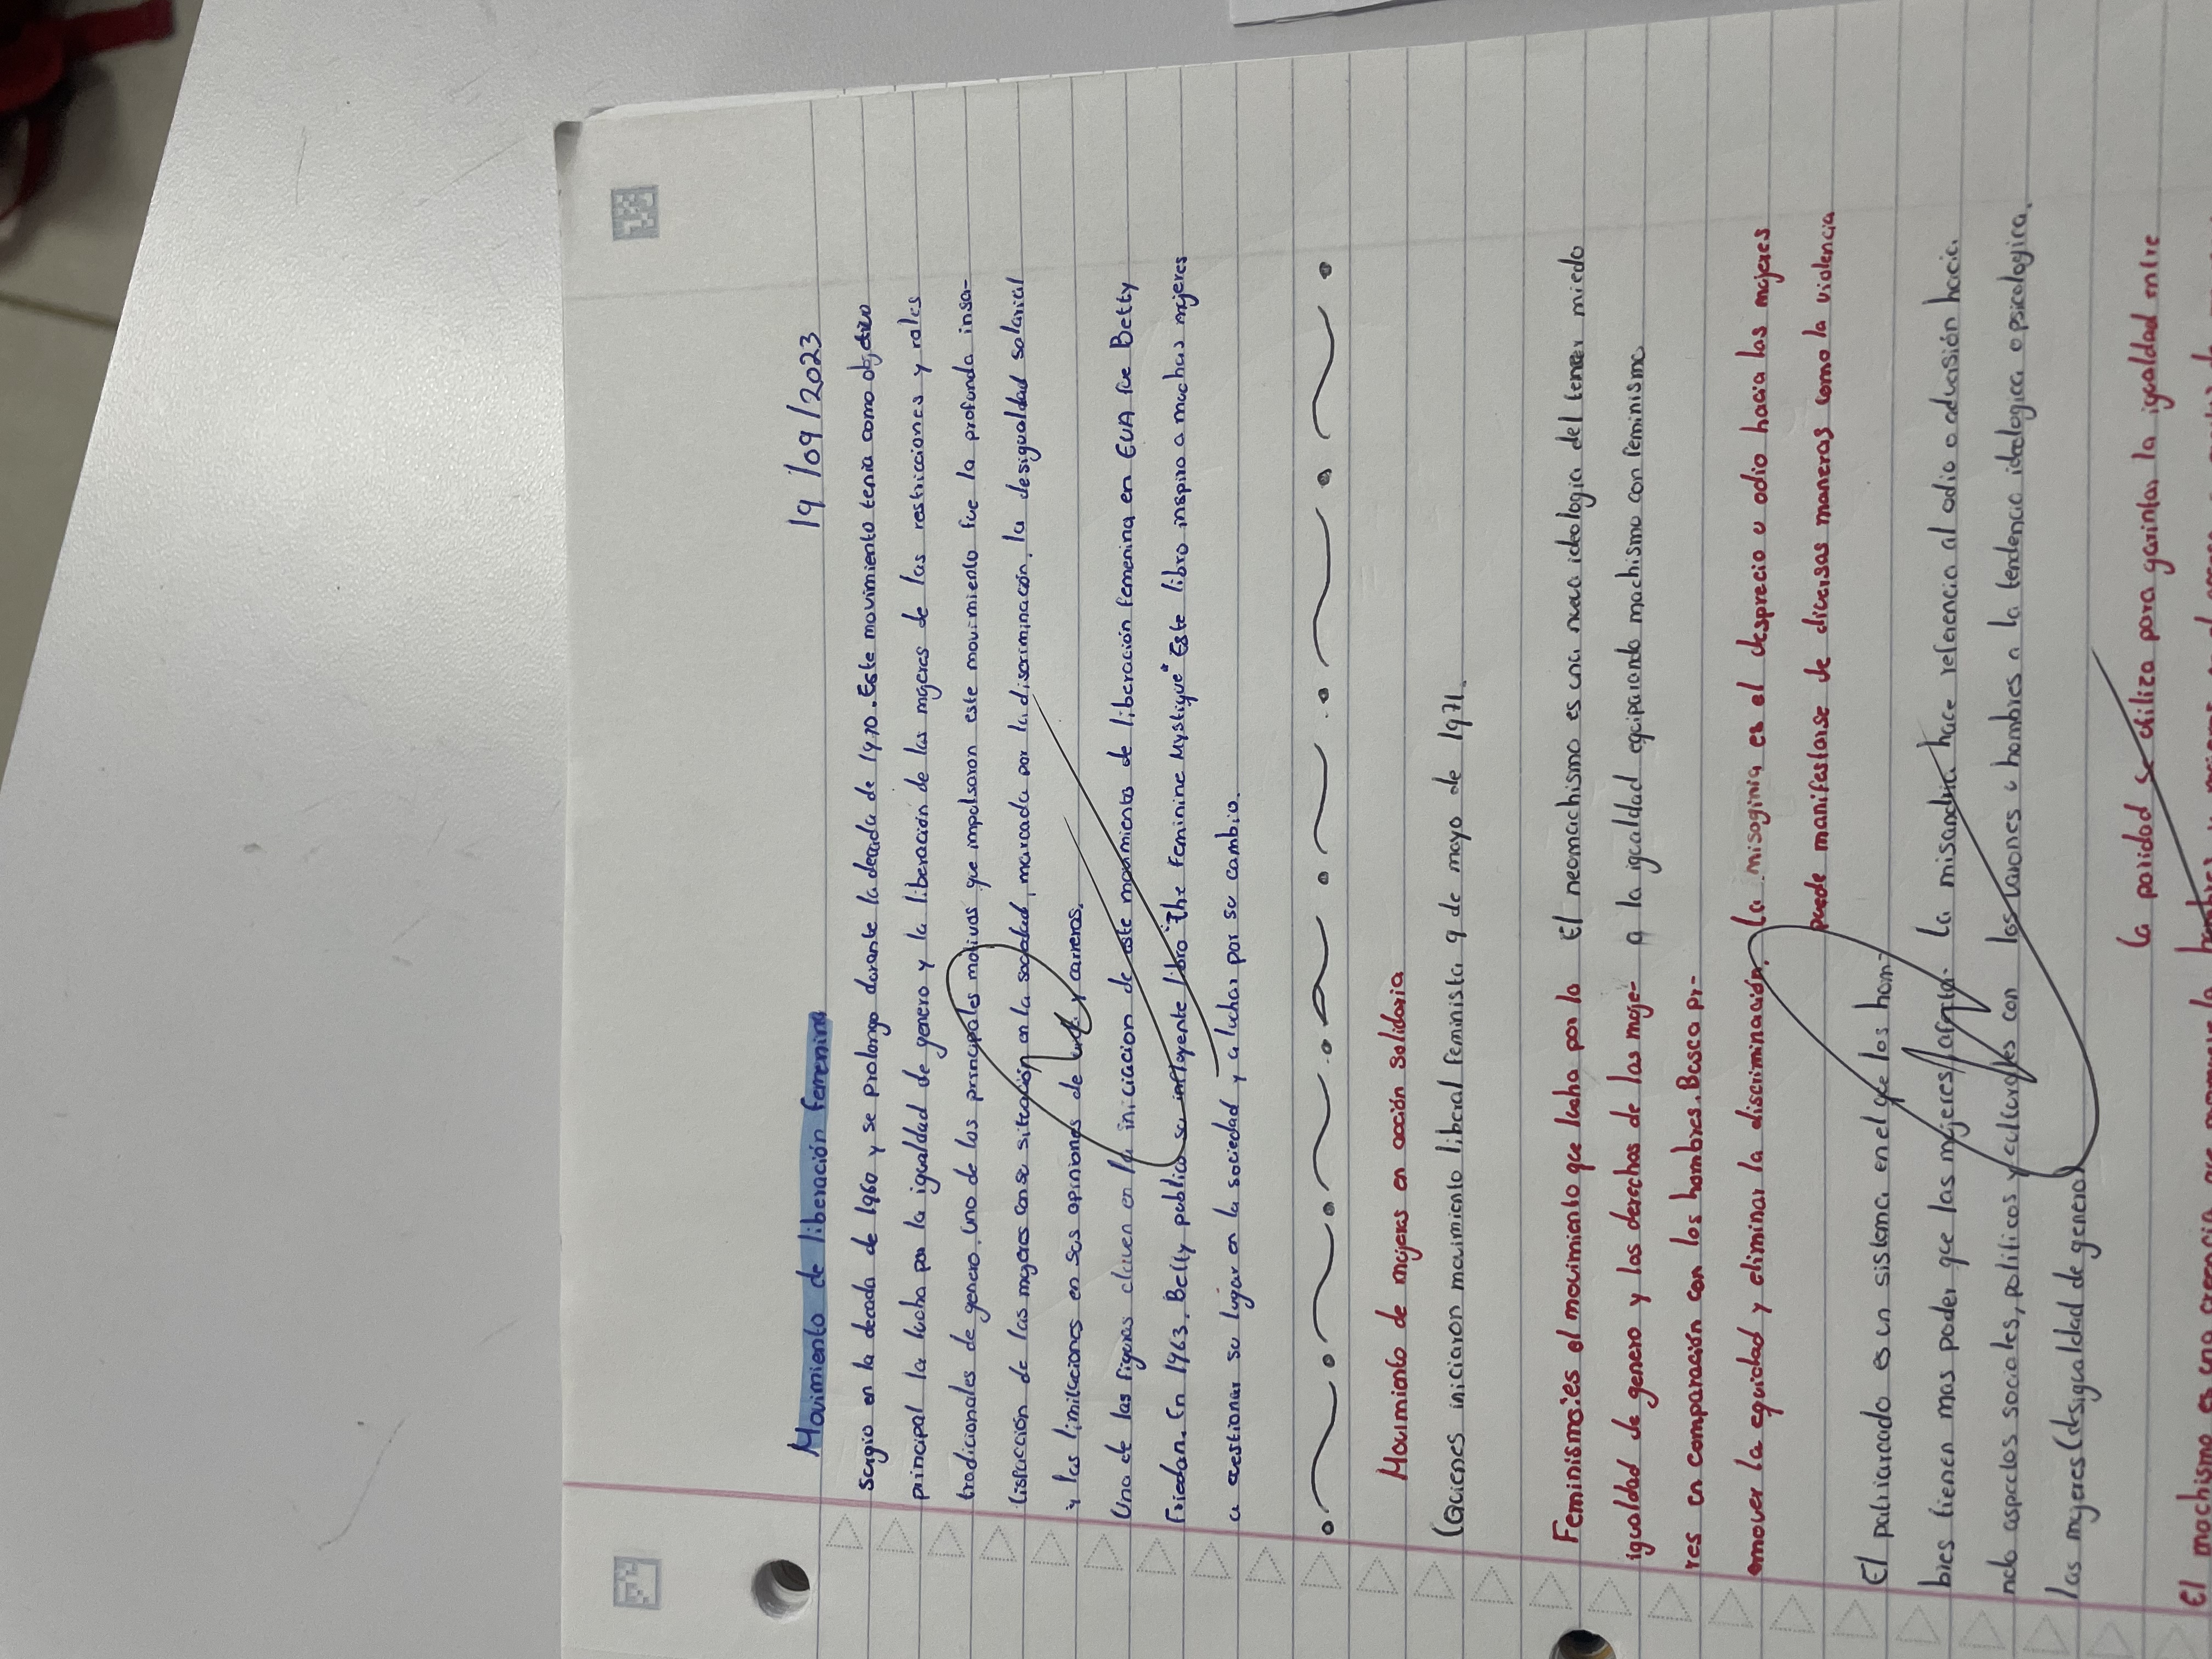 19/09/2023
Movimiento de liberación femenina
Surgio en la decada de 1960 y se prolongo durante la decada de 1970. Este movimiento tenia como objetivo
principal la lucha por la igualdad de genero y la liberación de las mujeres de las restricciones y roles
tradicionales de genero. Uno de los principales motivos que impulsaron este movimiento fue la profunda insa-
tisfacción de las mujeres con su situación en la sociedad, marcada por la discriminación, la desigualdad salarial
y las limitaciones en sus opiniones de y carreras.
Una de las figuras claven en la iniciacion de este movimientos de liberación femenina en EUA fue Betty
Friedan. En 1963, Betty publico su influyente libro "The Feminine Mystique" Este libro inspiro a muchas mujeres
a cuestionar su lugar en la sociedad y a luchar por su cambio.
Movimiento de mujeres en acción solidaria
(Quienes iniciaron movimiento liberal feminista 9 de mayo de 1971.
Feminismo:es el movimiento que lucha por la
igualdad de genero y los derechos de las muje-
res en comparación con los hombres. Busca pr-
omover la equidad y eliminar la discriminación.
El neomachismo es una nueva ideologia del tener miedo
a la igualdad equiparando machismo con feminismo.
La misoginia es el desprecio u odio hacia las mujeres
puede manifestarse de diversas maneras como la violencia
El patriarcado es un sistema en el que los hom-
bres tienen mas poder que las mujeres
ndo aspectos sociales, politicos y culturales con
las mujeres (desigualdad de genero)
La misandria hace referencia al odio o adversión hacia
los varones u hombres a la tendencia ideologica o psicologica.
La paridad se utiliza para garintar la igualdad entre
El machismo es una creencia que